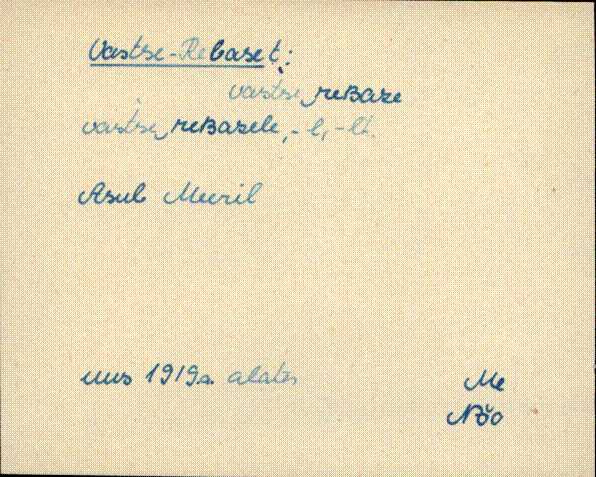 Vastse-Rebaset:
vastse‿reBaze
vastse‿reBazele, -l, -lt.
Asub Meeril
uus 1919a. alates
Me
Nõo